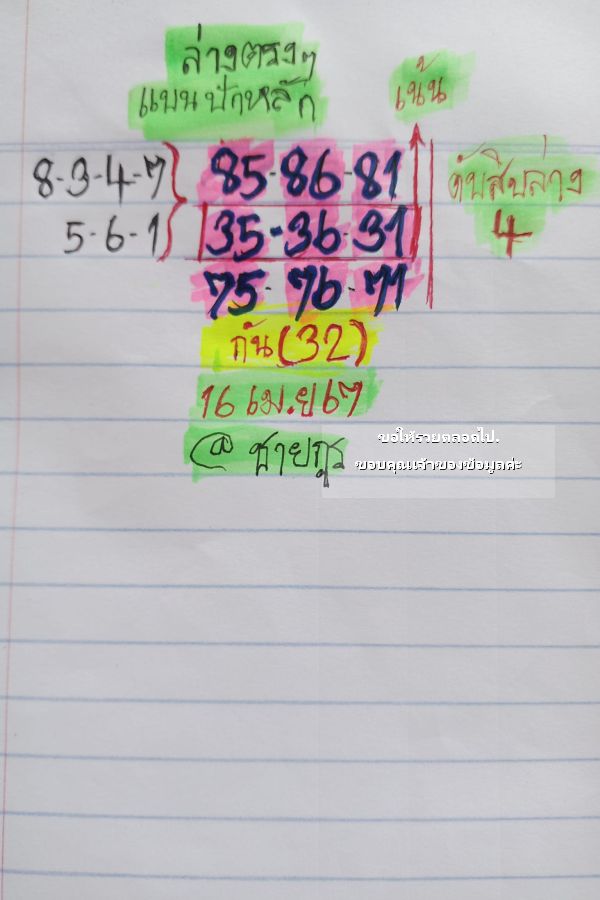 ล่างตรงๆ
แบบป๋าหลัก
เน้น
8-3-4-7
5-6-1
85-86-81
35-36-31
75-76-71
ดับสิบล่าง
4
กัน(32)
16 เม.ย 67
@ ชายกูร
ขอให้รวยตลอดไป.
ขอบคุณเจ้าของข้อมูลค่ะ